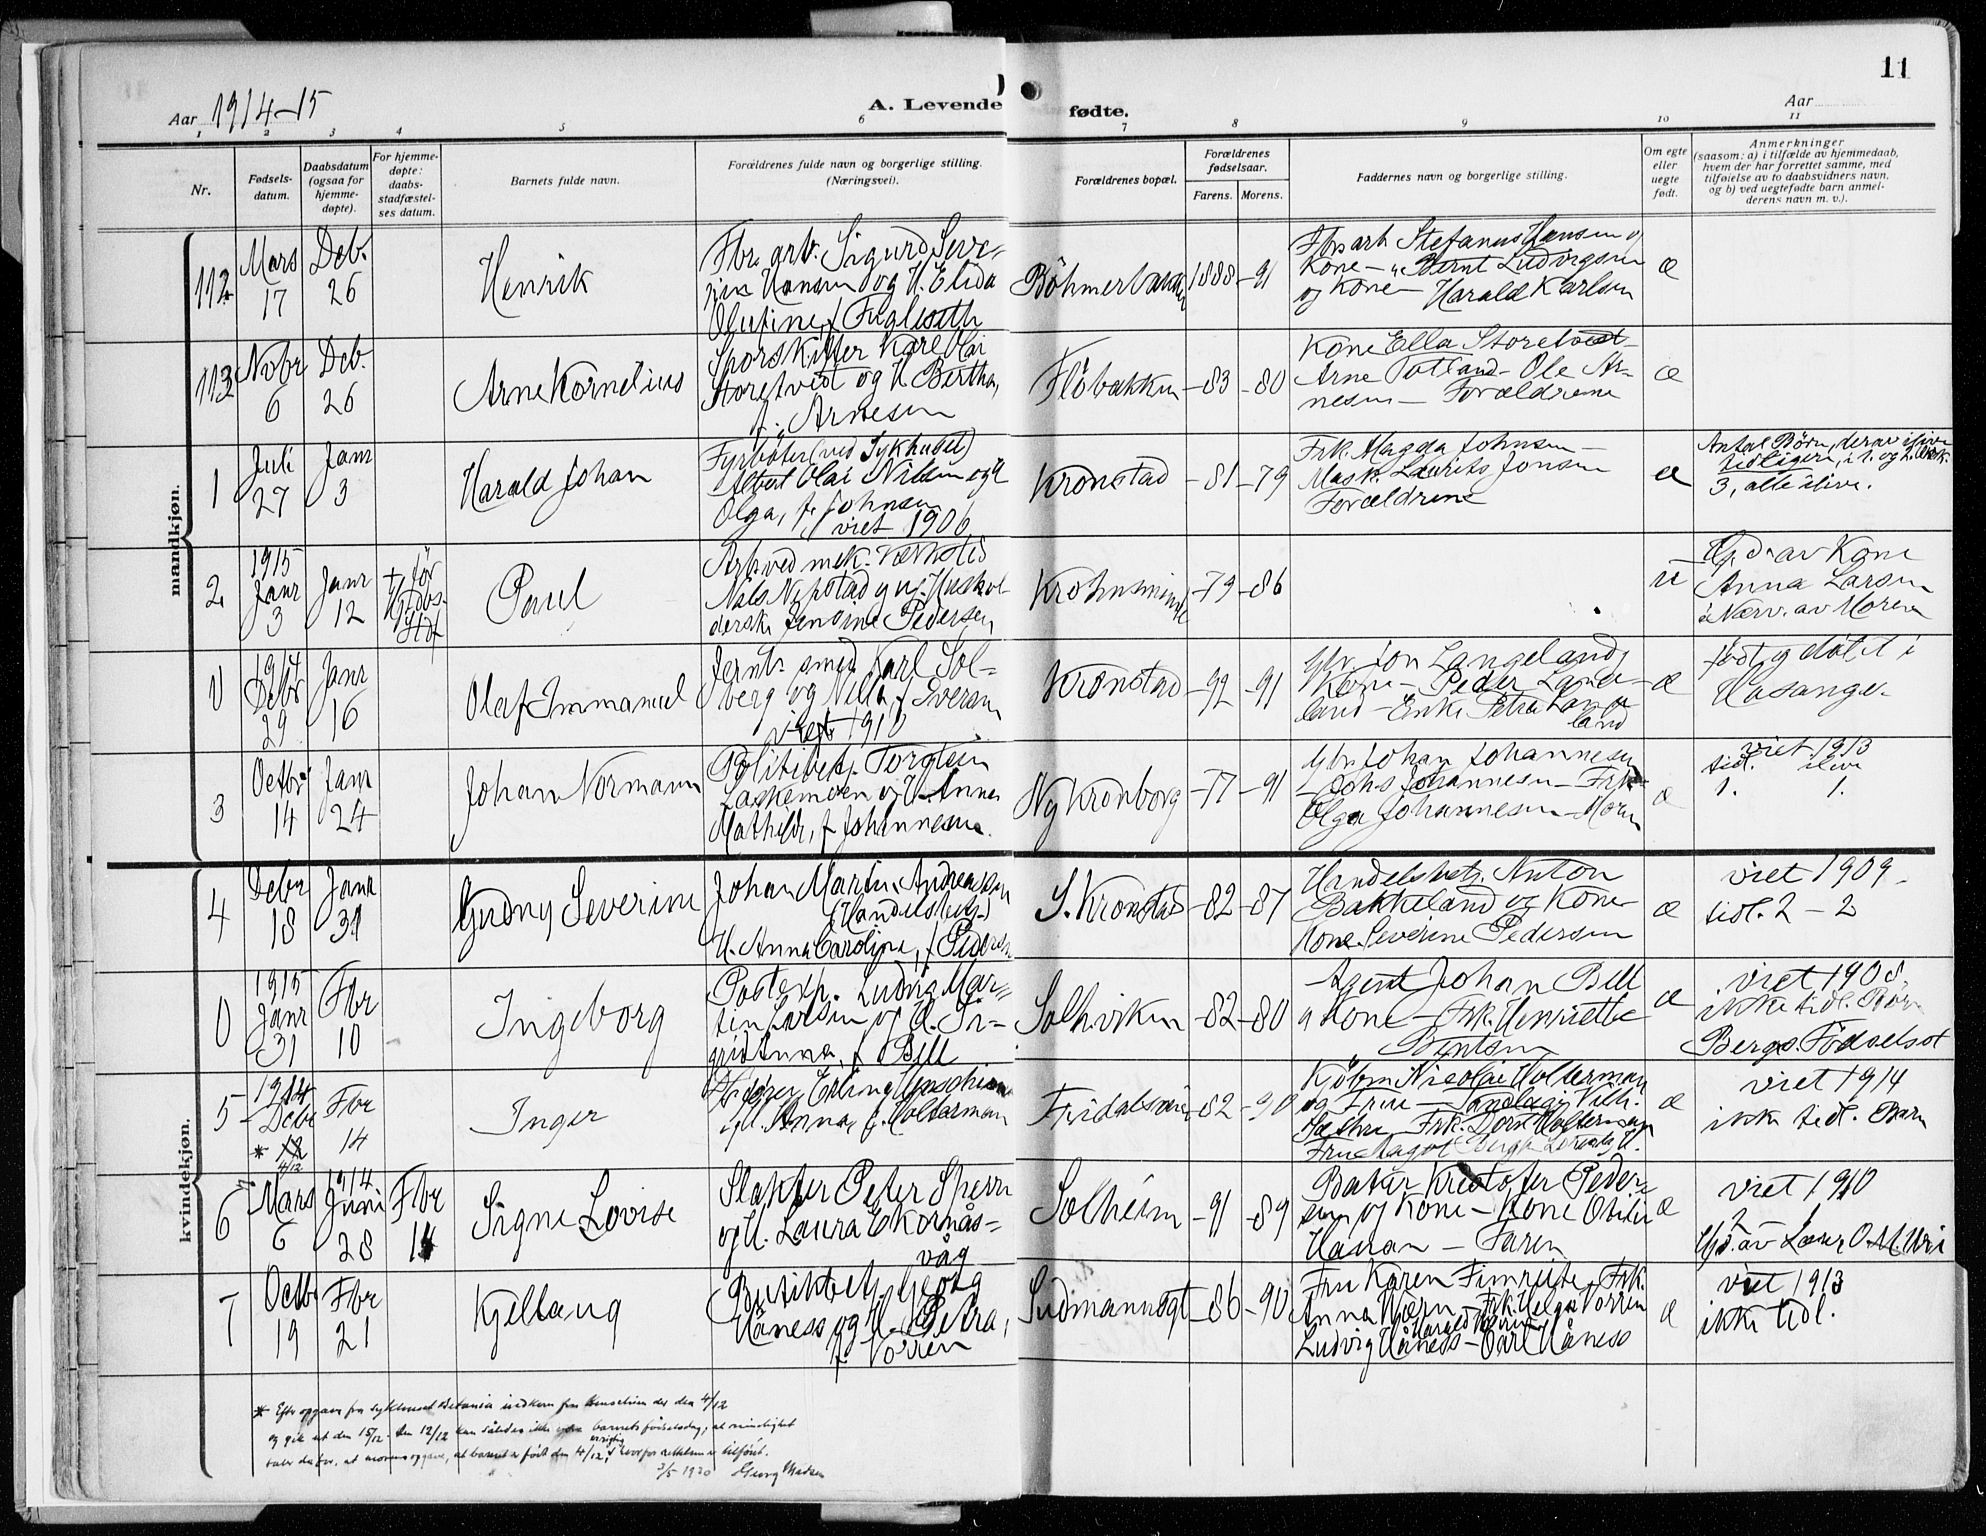 11
Aar 1914-15
A. Levende fødte.
Aar
1 2 3 4 5 6 7 8 9 10 11
Nr.
Fødsels-
datum.
Daabsdatum
(ogsaa for
hjemme-
døpte).
For hjemme-
døpte:
daabs-
stadfæstel-
ses datum.
Barnets fulde navn.
Forældrenes fulde navn og borgerlige stilling.
(Næringsvei).
Forældrenes bopæl.
Forældrenes
fødselsaar.
Farens. Morens.
Faddernes navn og borgerlige stilling.
Om egte
eller
uegte
født.
Anmerkninger
(saasom: a) i tilfælde av hjemmedaab,
hvem der har forrettet samme, med
tilføielse av to daabsvidners navn,
og b) ved uegtefødte barn anmel-
derens navn m. v.).
mandkjøn.
112
Mars
17
Deb.
26
Henrik
Fbr. arb. Sigurd Seve-
rin Hansen og H. Elida
Olufine, f. Fuglseth
Böhmerbakken
1888 -91
Fbrarb Stefanus Hansen og
Kone - Bernt Ludvigsen
og Kone - Harald Karlsen
æ
113
Novbr
6
Deb.
26
Arne Kornelius
Sporskifter Karl Olai
Storetvedt og H. Bertha,
f. Arnesen
Flöbakken
-83 -80
Kone Ella Storetvedt
Arne Totland - Ole Ar-
nesen - Forældrene
æ
1
Juli
27
Janr
3
Harald Johan
Fyrböter (ved Sykhuset)
Albert Olai Nilsen og H
Olga, f. Johnsen
viet 1906
Kronstad
-81 -79
Frk. Magda Johnsen -
Mask. Laurits Jonsen
Forældrene
æ
Antal Börn, derav ilive
tidligere, i 1. og 2. Ekt.
3, alle ilive.
2
1915
Janr
3
Janr
12
Paul
Arb. ved mek. Værksted
Nils Nypstad og ug.
Jensine Pedersen
Krohnsminde
-79 -86
u
Gd. av Kone
Anna Larsen
i Nærv. av Moren
0
1914
Debr
29
Janr
16
Olaf Immanuel
Jernb. smed Karl Sol-
berg og Nilla, f. Iversen
viet 1910
Kronstad
-92 -91
Gbr. Jon Langeland,
Kone - Peder Lange-
land - Enke Petra Lange
land
æ
född og döbt i
Hosanger
3
Octbr
14
Janr
24
Johan Normann
Politibetj. Torstein
Laskemoen og H. Anna
Mathilde, f. Johannesen.
Ny Kronborg
-77 -91
Gbr. Johan Johannesen
- Johs Johannesen - Frk.
Olga Johannesen - Moren
æ
viet 1913
tid. ilive
1. 1.
kvindekjøn.
4
Debr
18
Janr
31
Gudny Severine
Johan Martin Andreassen
(Handelsbetj.)
H. Anna Carolina, f. Pedersen
S. Kronstad
-82 -87
Handelsbetj. Anton
Bakkeland og Kone -
Kone Severine Pedersen
æ
viet 1909 -
tidl. 2 - 2
0
1915
Janr
31
Fbr
10
Ingeborg
Postexp. Ludvig Mar-
tin Larsen og H. Si-
grid Anna, f. Bell
Solhviken
-82 -80
Agent Johan Bell
og Kone - Frk. Henriette
Bentsen
æ
viet 1908.
ikke tidl. Börn
Bergs. Födselsst
5
1914
Debr
* 12
4/12
Fbr
14
Inger
og H. Anna, f. Holterman
Fridalsveien
-82 -90
Kjöbm Nicolai Holterman
og Frue -
Frk. Dora Holterman
æ
viet 1914
ikke tidl. Barn
6
Mars
6
1914
Juni
28
Fbr
14
Signe Lovise
Slakter Peter Sperre
og H. Laura Ekornås-
våg
Solheim
-91 -89
Baker Kristofer Peder-
sen og Kone - Kone
- Faren
æ
viet 1910
2
Gd. av Lærer O. M. Uri
7
Octbr
19
Fbr
21
Kjellaug
Butikbetj. Georg
Håness og H. Petra,
f. Norren
Sudmannsgt
-86 -90
Fru Karen Fimreite, Frk.
Anna Bjørn - Frk. Helga Norren
Ludvig Håness - Carl Håness
æ
viet 1913
ikke tidl.
* Efter opgave fra sykehuset Betania indkom fru Henschien der den 4/12
og gik ut den 15/12. Den 12/12 kan således ikke være barnets fødselsdag, al rimelighet
taler derfor, at morens opgave, at barnet er født den 4/12, er rigtig, hvorfor rettelsen er tilført.
3/5 1920 Georg Madsen